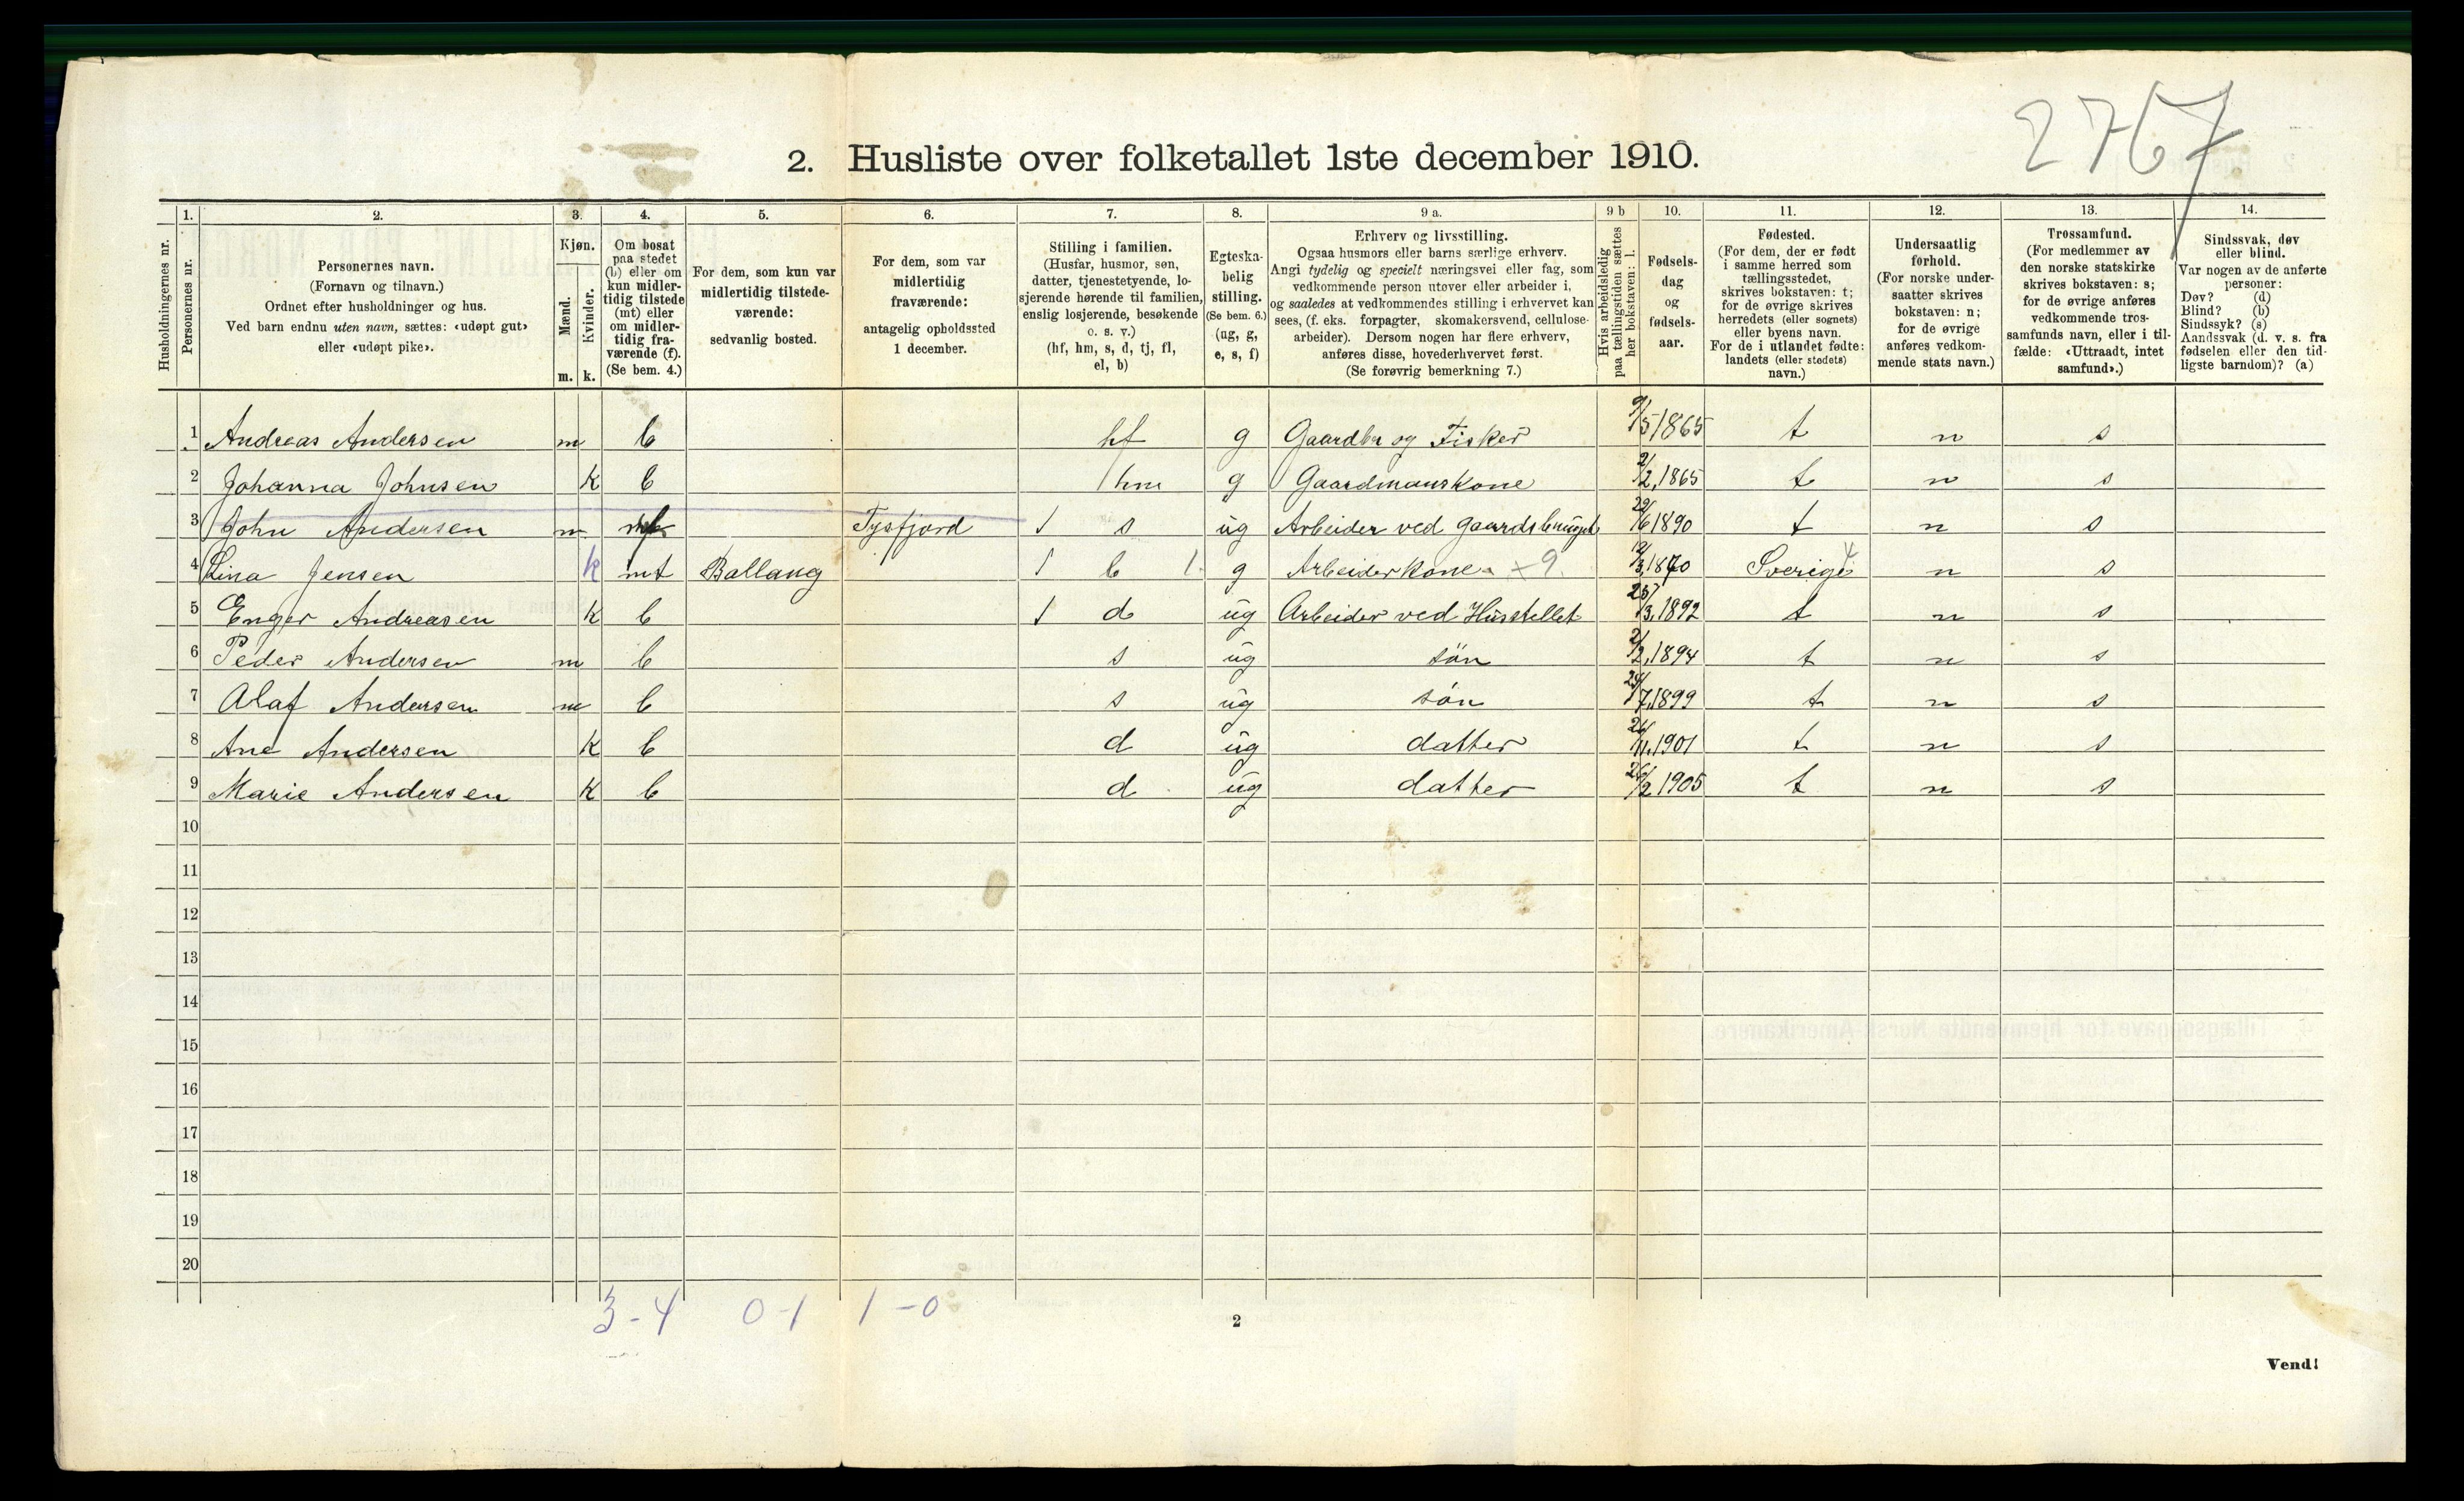 2767
2. Husliste over folketallet 1ste december 1910.
Husholdningernes nr.
1. Personernes nr.
2. Personernes navn. (Fornavn og tilnavn.) Ordnet efter husholdninger og hus. Ved barn endnu uten navn, sættes: «udøpt gut» eller «udøpt pike».
3. Kjøn. Mænd. m. Kvinder. k.
4. Om bosat paa stedet (b) eller om kun midlertidig tilstede (mt) eller om midlertidig fraværende (f). (Se bem. 4.)
5. For dem, som kun var midlertidig tilstedeværende: sedvanlig bosted.
6. For dem, som var midlertidig fraværende: antagelig opholdssted 1 december.
7. Stilling i familien. (Husfar, husmor, søn, datter, tjenestetyende, losjerende hørende til familien, enslig losjerende, besøkende o. s. v.) (hf, hm, s, d, tj, fl, el, b)
8. Egteskabelig stilling. (Se bem. 6.) (ug, g, e, s, f)
9 a. Erhverv og livsstilling. Ogsaa husmors eller barns særlige erhverv. Angi tydelig og specielt næringsvei eller fag, som vedkommende person utøver eller arbeider i, og saaledes at vedkommendes stilling i erhvervet kan sees, (f. eks. forpagter, skomakersvend, cellulosearbeider). Dersom nogen har flere erhverv, anføres disse, hovederhvervet først. (Se forøvrig bemerkning 7.)
9 b Hvis arbeidsledig paa tællingstiden sættes her bokstaven: l.
10. Fødselsdag og fødselsaar.
11. Fødested. (For dem, der er født i samme herred som tællingsstedet, skrives bokstaven: t; for de øvrige skrives herredets (eller sognets) eller byens navn. For de i utlandet fødte: landets (eller stedets) navn.)
12. Undersaatlig forhold. (For norske undersaatter skrives bokstaven: n; for de øvrige anføres vedkommende stats navn.)
13. Trossamfund. (For medlemmer av den norske statskirke skrives bokstaven: s; for de øvrige anføres vedkommende trossamfunds navn, eller i tilfælde: «Uttraadt, intet samfund».)
14. Sindssvak, døv eller blind. Var nogen av de anførte personer: Døv? (d) Blind? (b) Sindssyk? (s) Aandssvak (d. v. s. fra fødselen eller den tidligste barndom)? (a)
1 Andreas Andersen m b hf g Gaardbr og Fisker 9/5 1865 t n s
2 Johanna Johnsen k b hm g Gaardmanskone 2/2 1865 t n s
3 John Andersen m Tysfjord 1 s ug Arbeider ved gaardsbruget 29/6 1890 t n s
4 Lina Jensen k mt Ballang 1 b 1 g Arbeiderkone x 9 1870 Sverige 4 n s
5 Enger Andreasen k b 1 d ug Arbeider ved Husstellet 25/3 1892 t n s
6 Peder Andersen m b s ug søn 2/2 1894 t n s
7 Olaf Andersen m b s ug søn 1899 t n s
8 Ane Andersen k b d ug datter 1901 t n s
9 Marie Andersen k b d ug datter 26/2 1905 t n s
10
11
12
13
14
15
16
17
18
19
20
3-4 0-1 1-0
2
Vend!